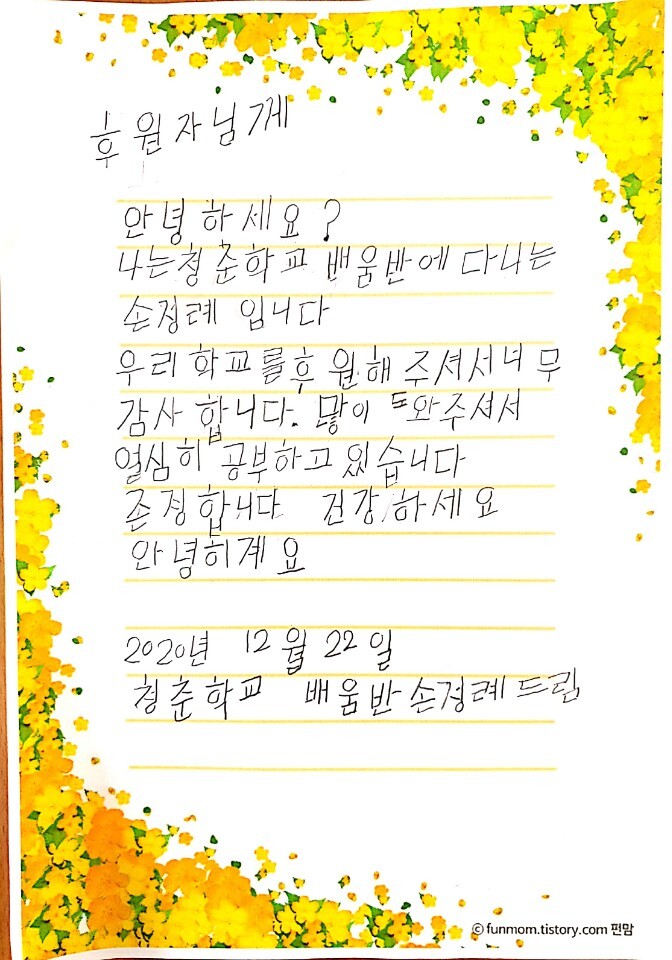 후원자님게
안녕하세요?
나는청춘학교 배움반에 다니는
손정례 입니다
우리 학교를후원해 주셔서너무
감사합니다. 많이 도와주셔서
열심히 공부하고 있습니다
존경합니다 건강하세요
안녕히게요
2020년 12월 22일
청춘학교 배움반손정례드림
© funmom.tistory.com 펀맘